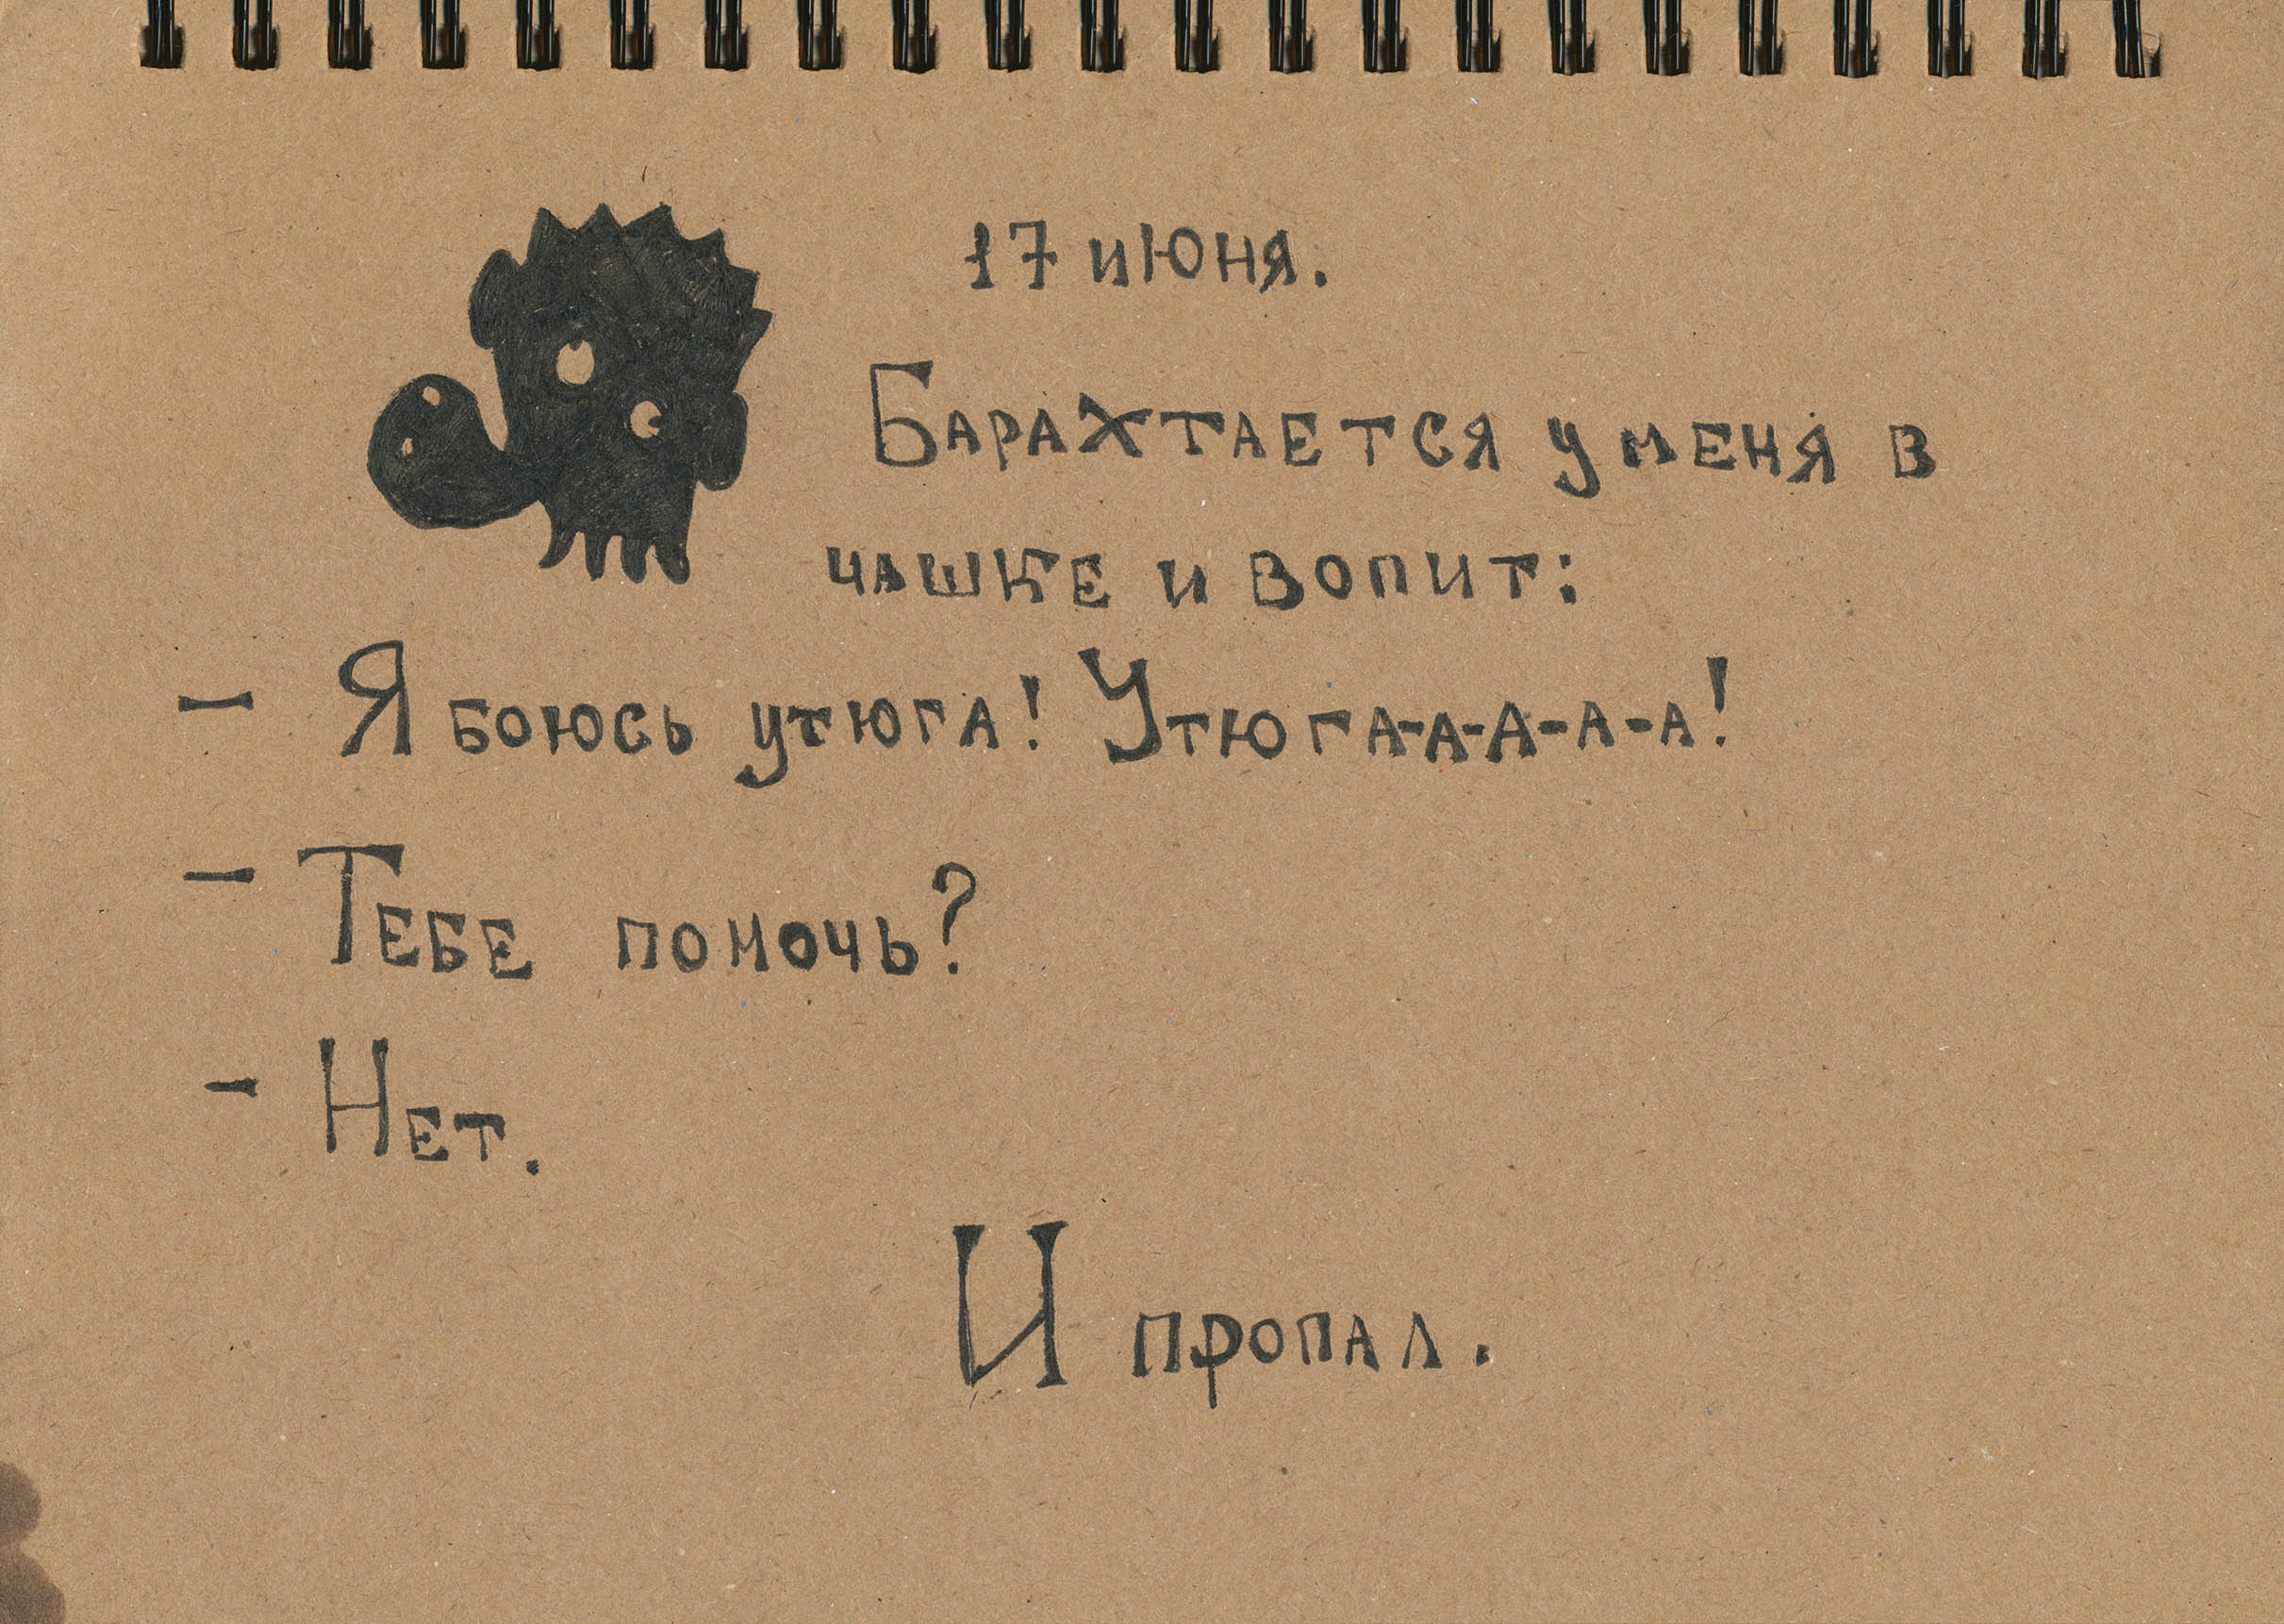 17 июня.
Барахтается у меня в
чашке и вопит:
– Я боюсь утюга! Утюга-а-а-а-а!
– Тебе помочь?
– Нет.
И пропал.